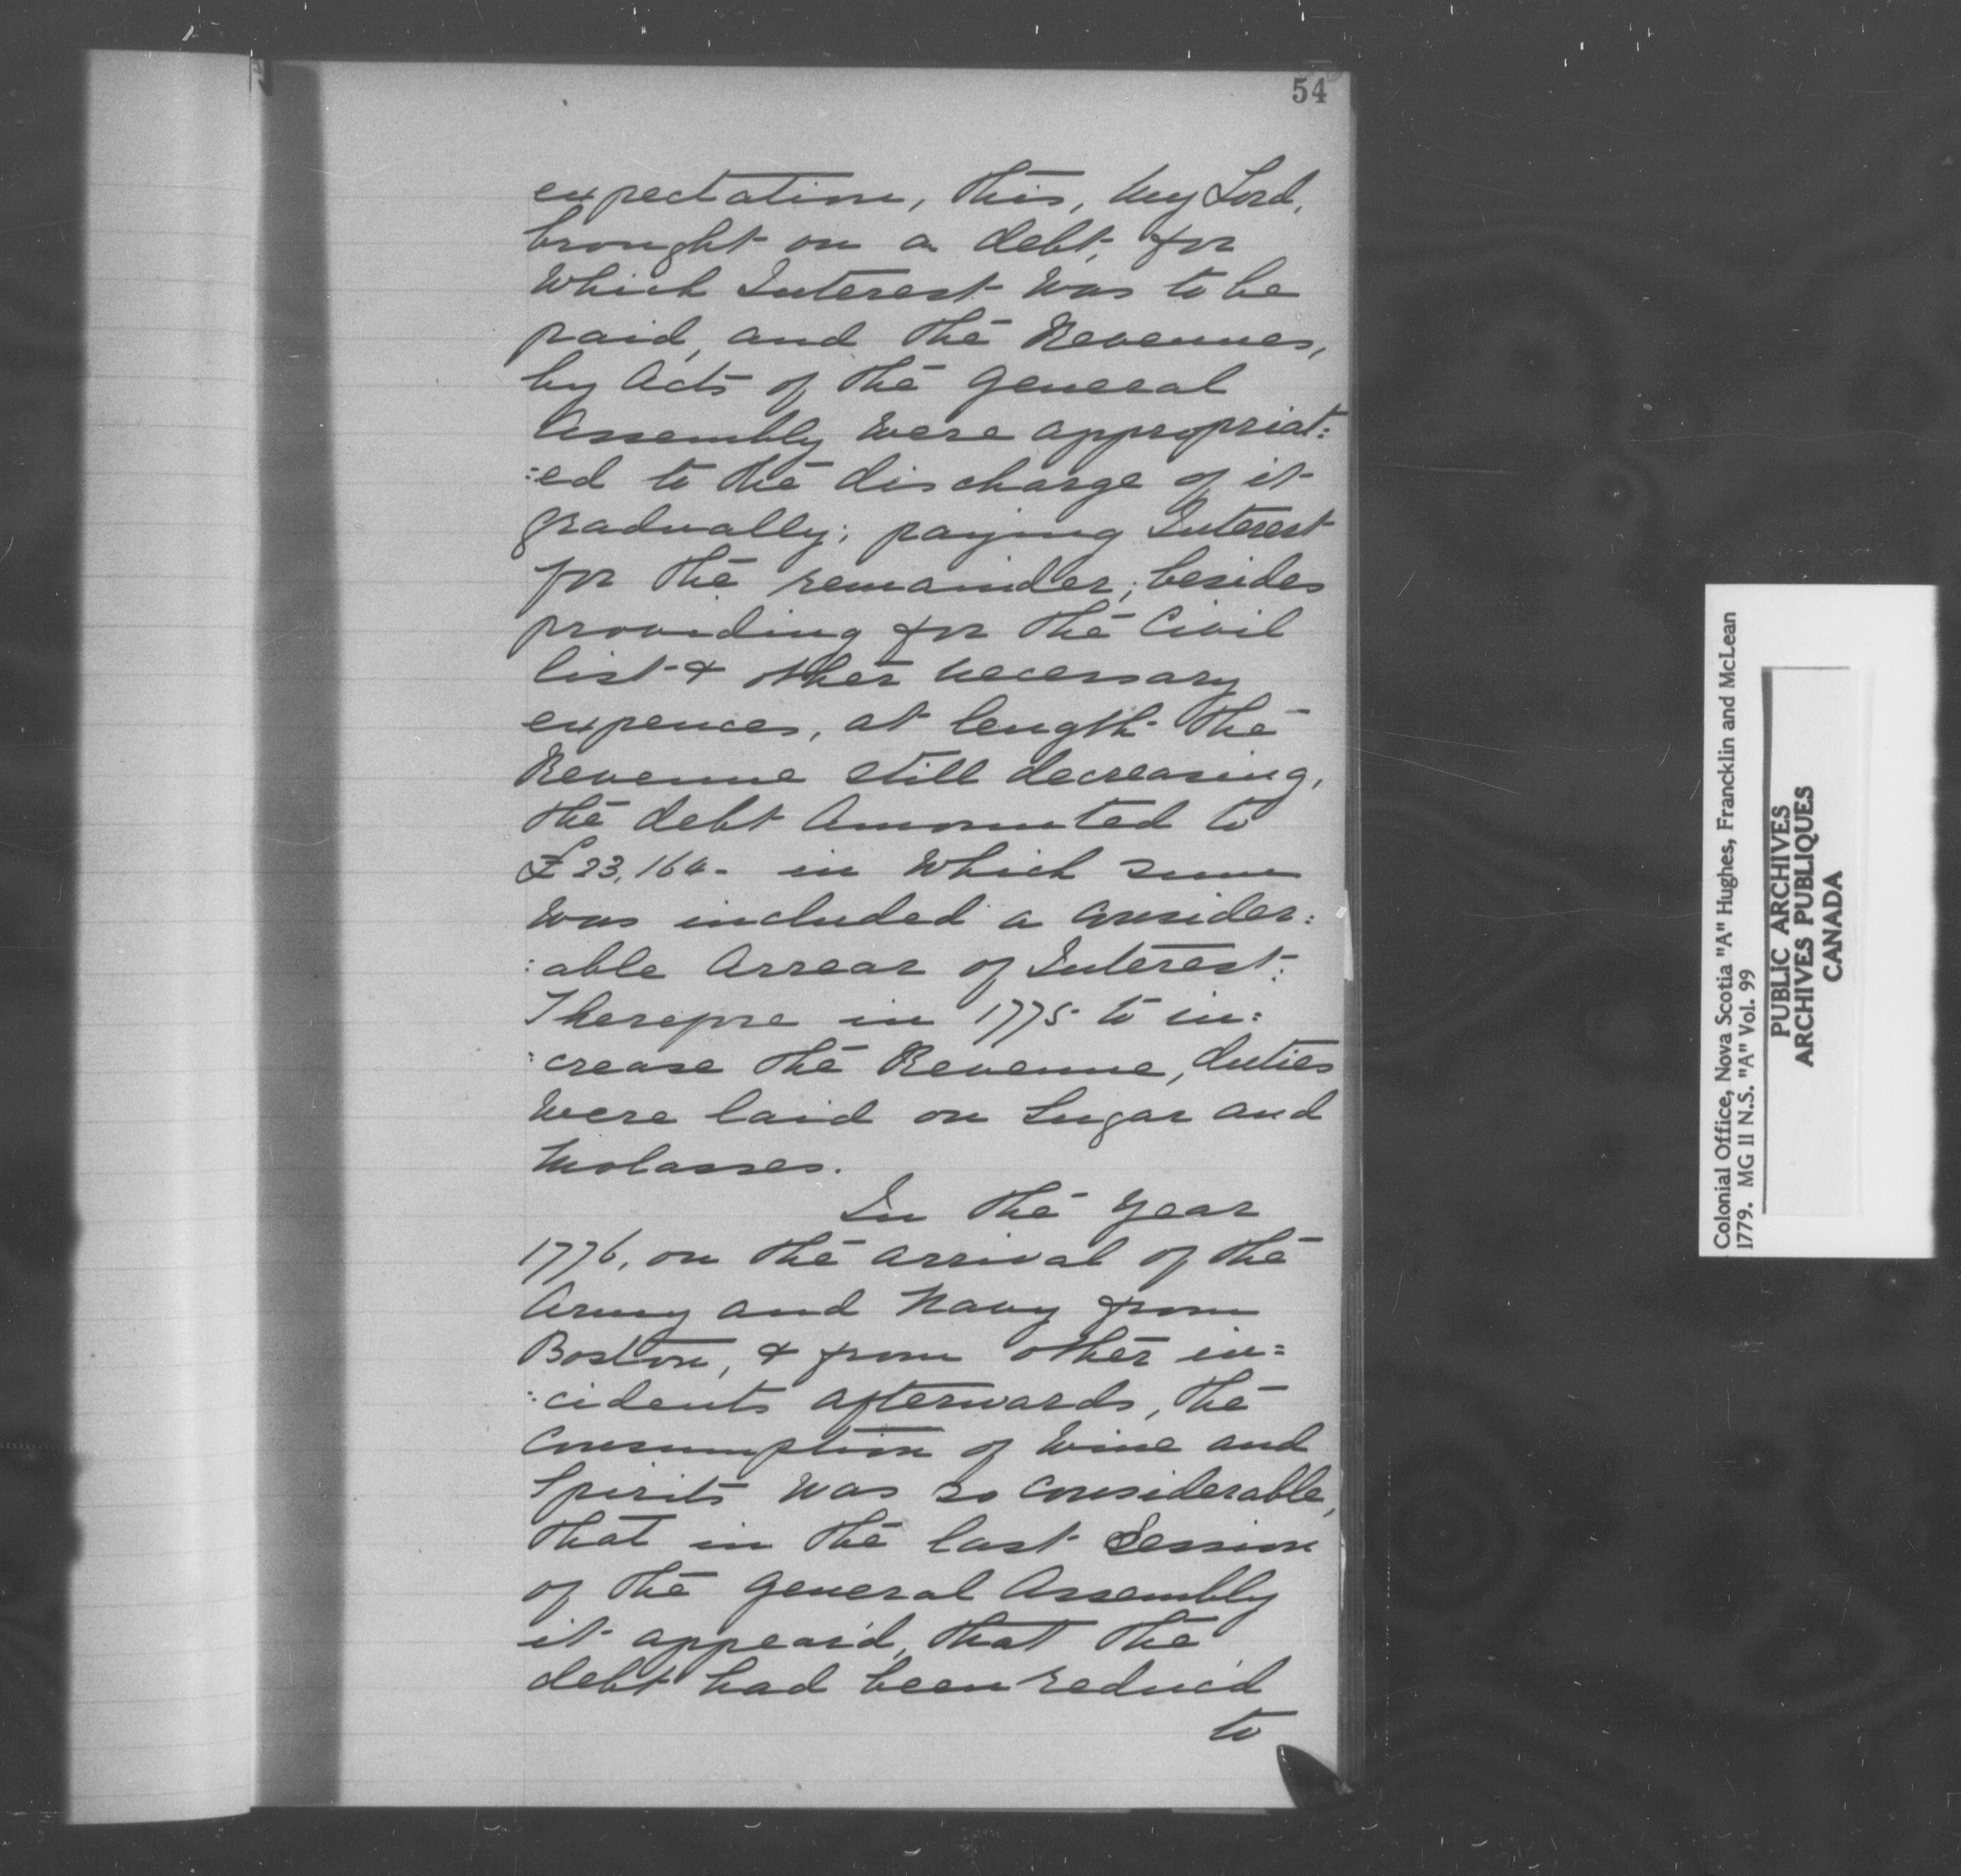 54
expectation, this, My Lord,
brought on a debt, for
Which Interest was to be
paid, and the Revenues,
by Acts of the General
Assembly were appropriat:
:ed to the discharge of it
gradually; paying Interest
for the remainder; besides
providing for the Civil
list & other necessary
expences, at length the
Revenue still decreasing,
the debt Amounted to
in Which sum
Was included a consider:
:able Arrear of Interest:
Therefore in 1775 to in:
:crease the Revenue, duties
Were laid on Sugar and
Molasses.
In the Year
1776, on the arrival of the
Army and Navy from
Boston, & from other in:
:cidents afterwards, the
Consumption of Wine and
Spirits was so considerable,
that in the last Session
of the General Assembly
it appear'd, that the
debt had been reduc'd
to
Colonial Office, Nova Scotia "A" Hughes, Francklin and McLean
1779. MG 11 N.S. "A" Vol. 99
PUBLIC ARCHIVES
ARCHIVES PUBLIQUES
CANADA